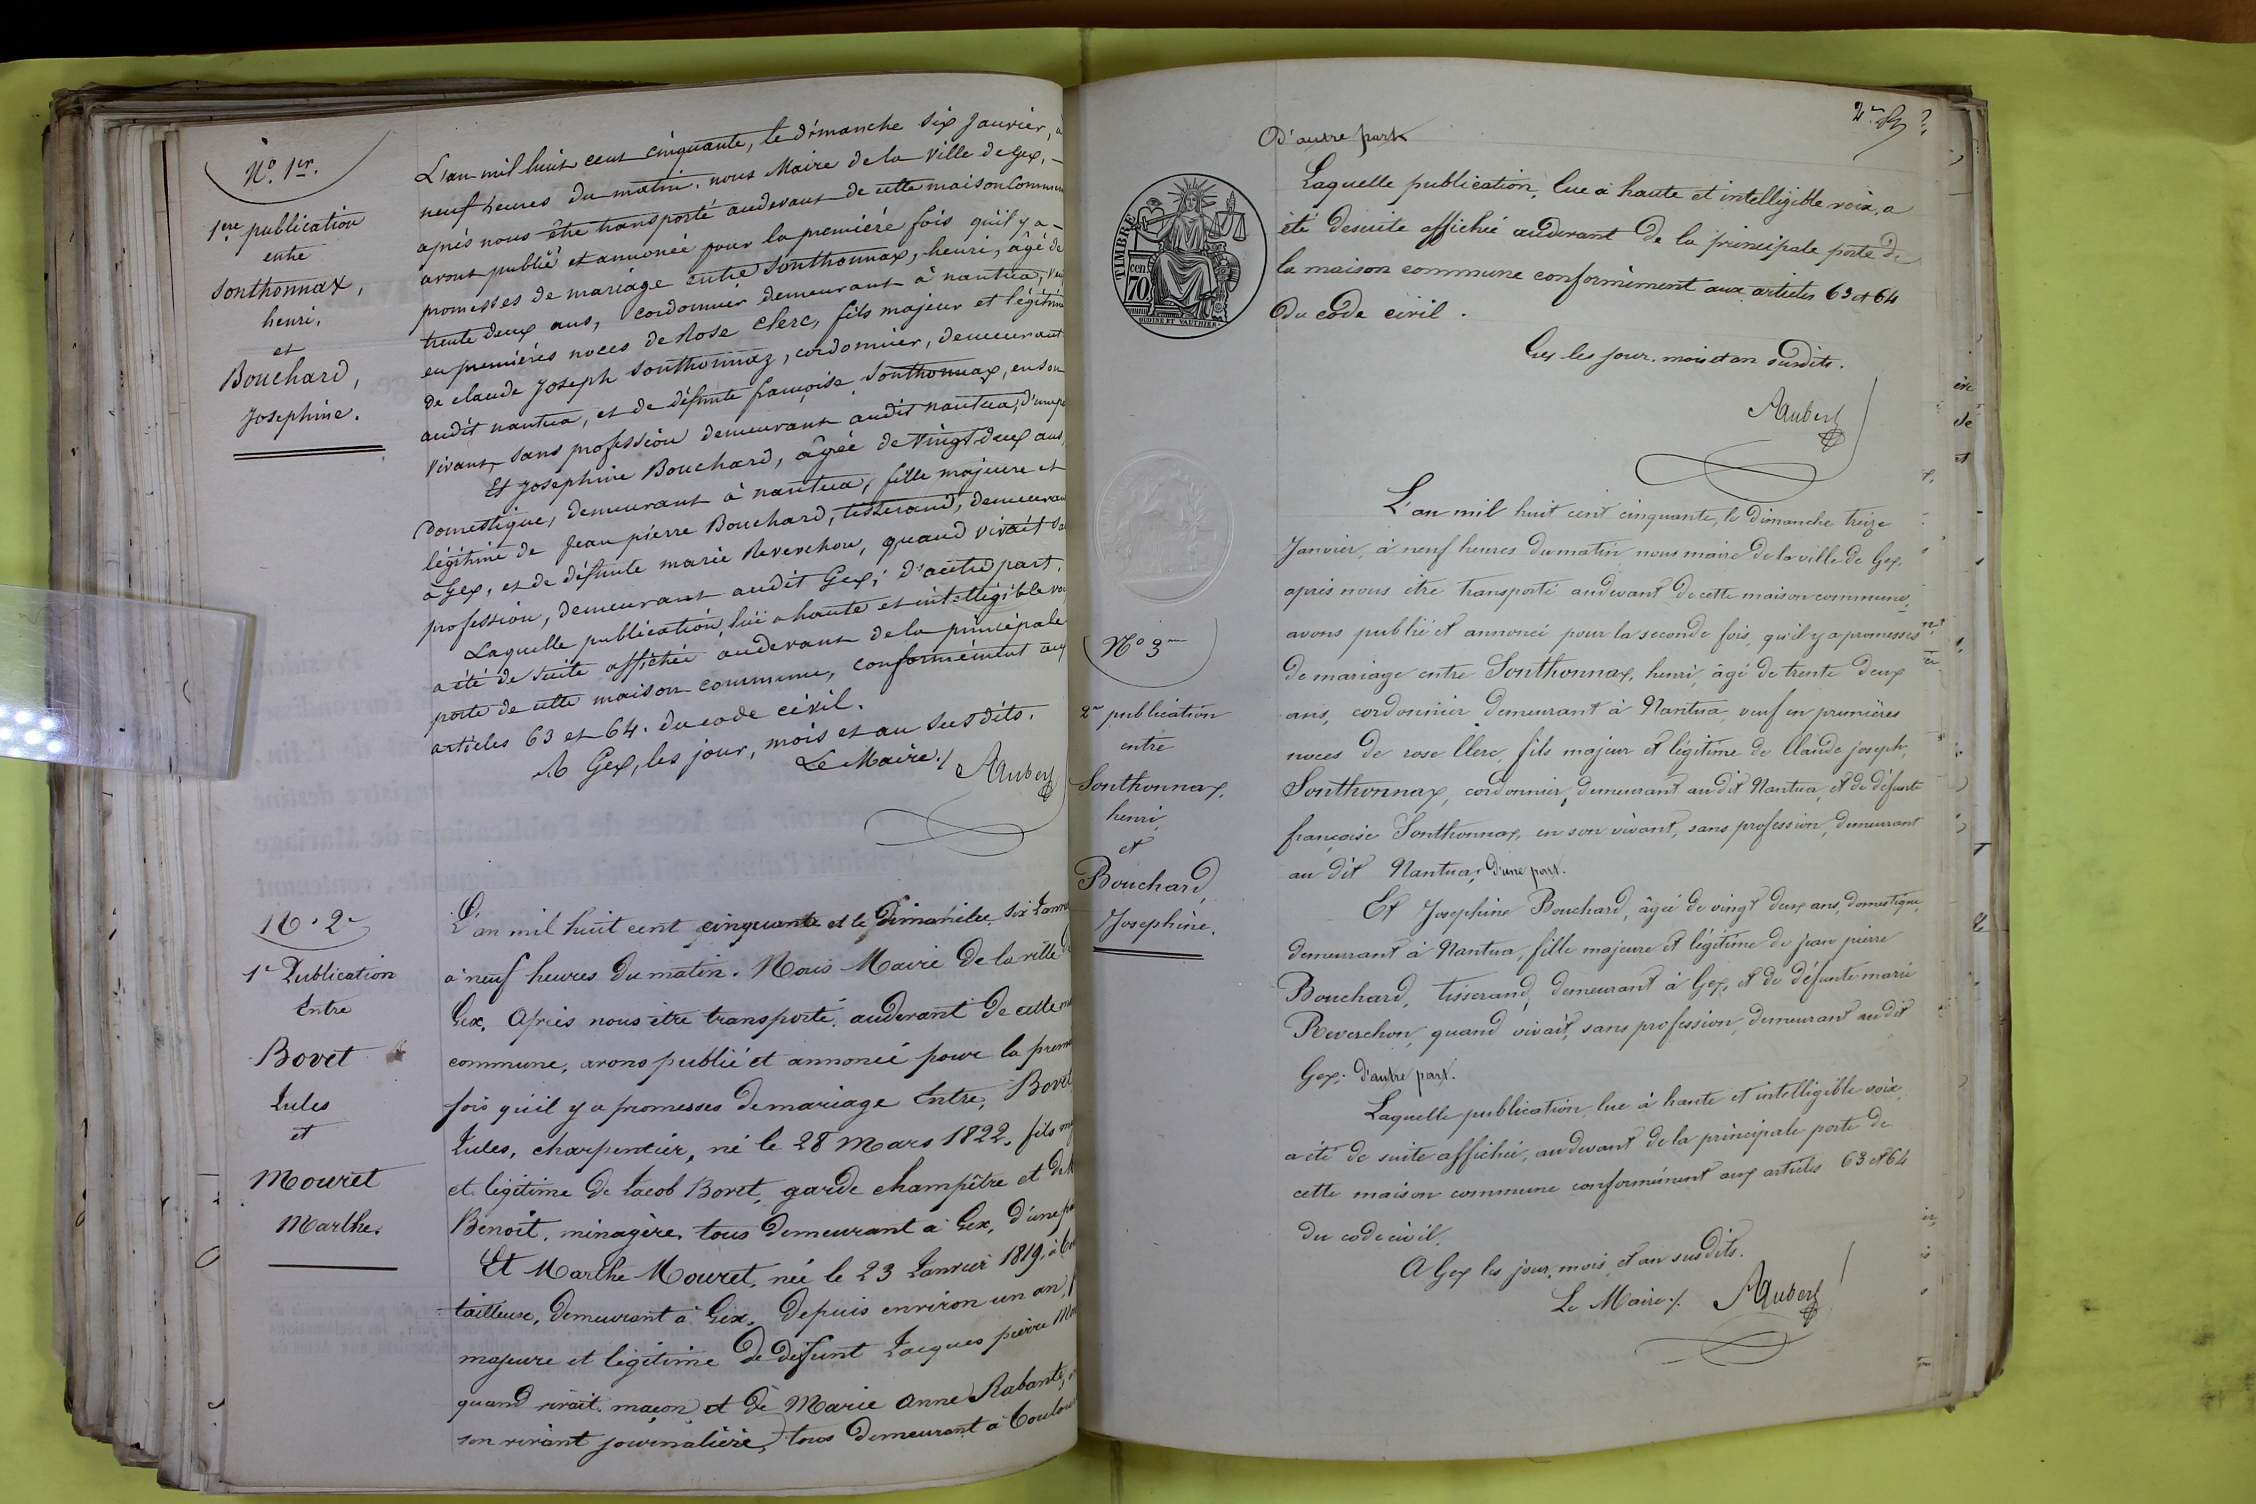 N.° 1er.
1ere publication
entre
Sonthonnax,
henri,
et
Bouchard,
Josephine.
L'an mil huit cent cinquante, le dimanche six janvier, à
neuf heures du matin, nous Maire de la Ville de Gex,
après nous être transporté audevant de cette maison Commune
avons publié et annoncé pour la première fois qu'il y a
promesses de mariage entre Sonthonnax, henri, âgé de
trente deux ans, cordonnier demeurant à nantua, veuf
en premières noces de Rose Clerc, fils majeur et légitime
de claude Joseph Sonthonnax, cordonnier, demeurant
audit nantua, et de défunte françoise Sonthonnax, en son
vivant, sans profession demeurant audit nantua, d'une part
Et Josephine Bouchard, âgée de vingt deux ans,
domestique, demeurant à nantua, fille majeure et
légitime de Jean pierre Bouchard, tisserand, demeurant
à Gex, et de défunte marie Reverchon, quand vivait sa
profession, demeurant audit Gex; d'autre part.
Laquelle publication, lue à haute et intelligible voix
a été de suite affichée audevant de la principale
porte de cette maison commune, conformément aux
articles 63 et 64. du code civil.
A Gex, les jour, mois et an susdits.
Le Maire / AAubert
N.° 2e
1e Publication
Entre
Bovet
Jules
et
Mouret
Marthe.
L'an mil huit cent cinquante et le Dimanche six Janv
à neuf heures du matin. Nous Maire de la ville de
Gex, Après nous être transporté, audevant de cette
commune, avons publié et annoncé pour la prem
fois qu'il y a promesses de mariage Entre, Bovet
Jules, charpentier, né le 28 Mars 1822, fils maj
et légitime de Jacob Bovet, garde champêtre et de
Benoît, ménagère, tous demeurant à Gex, d'une pa
Et Marthe Mouret, née le 23 Janvier 1819, à
tailleuse, demeurant à Gex, Depuis environ un an,
majeure et légitime de défunt Jacques pierre Mou
quand vivait maçon, et de Marie Anne Rabante,
son vivant journalière, tous demeurant à
2e
D'autre part
Laquelle publication, lue à haute et intelligible voix, a
été desuite affichée audevant de la principale porte de
la maison commune conformément aux articles 63 et 64
du code civil.
Gex les jour, mois et an susdits.
AAubert
TIMBRE
70 cen
OUDINE ET VAUTHIER
N° 3me
2me publication
entre
Sonthonnax,
henri,
et
Bouchard,
Josephine.
L'an mil huit cent cinquante, le dimanche treize
Janvier, à neuf heures du matin nous maire de la ville de Gex,
après nous être transporté audevant de cette maison commune,
avons publié et annoncé pour la seconde fois, qu'il y a promesses
de mariage entre Sonthonnax, henri, âgé de trente deux
ans, cordonnier demeurant à Nantua, veuf en premières
noces de rose Clerc, fils majeur et légitime de Claude joseph,
Sonthonnax, cordonnier, demeurant audit Nantua, et de défunte
françoise Sonthonnax, en son vivant, sans profession, demeurant
au dit Nantua; d'une part.
Et Josephine Bouchard, âgée de vingt deux ans, domestique,
demeurant à Nantua, fille majeure et légitime de jean pierre
Bouchard, tisserand, demeurant à Gex, et de défunte marie
Reverchon, quand vivait, sans profession, demeurant audit
Gex; d'autre part.
Laquelle publication, lue à haute et intelligible voix,
a été de suite affichée, audevant de la principale porte de
cette maison commune conformément aux articles 63 et 64
du code civil.
A Gex les jour, mois et an susdits.
Le Maire /. AAubert